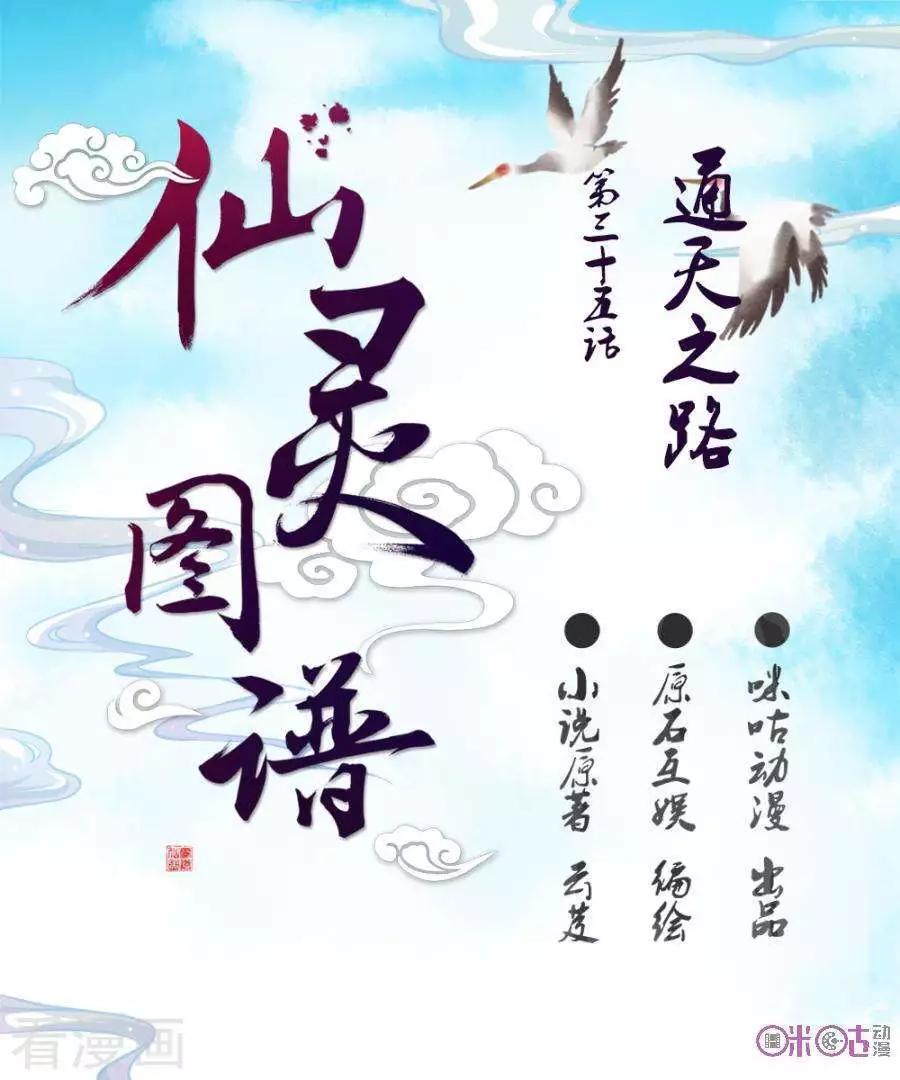 仙灵图谱
第三十五话
通天之路
咪咕动漫 出品
原石互娱 编绘
小说原著 云芨
看漫画
咪咕动漫